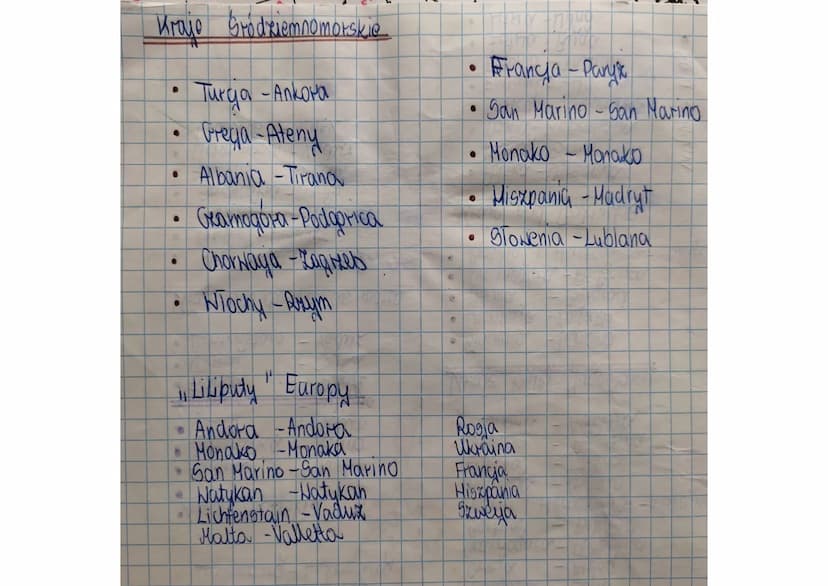 Kraje Śródziemnomorskie
• Turcja - Ankara
• Grecja - Ateny
• Albania - Tirana
• Czarnogóra - Podgorica
• Chorwacja - Zagrzeb
• Włochy - Rzym
• Francja - Paryż
• San Marino - San Marino
• Monako - Monako
• Hiszpania - Madryt
• Słowenia - Lublana
„Liliputy" Europy
• Andora - Andora
• Monako - Monaka
• San Marino - San Marino
• Watykan - Watykan
• Lichtenstain - Vaduz
Malta - Valletta
Rosja
Ukraina
Francja
Hiszpania
Szwecja